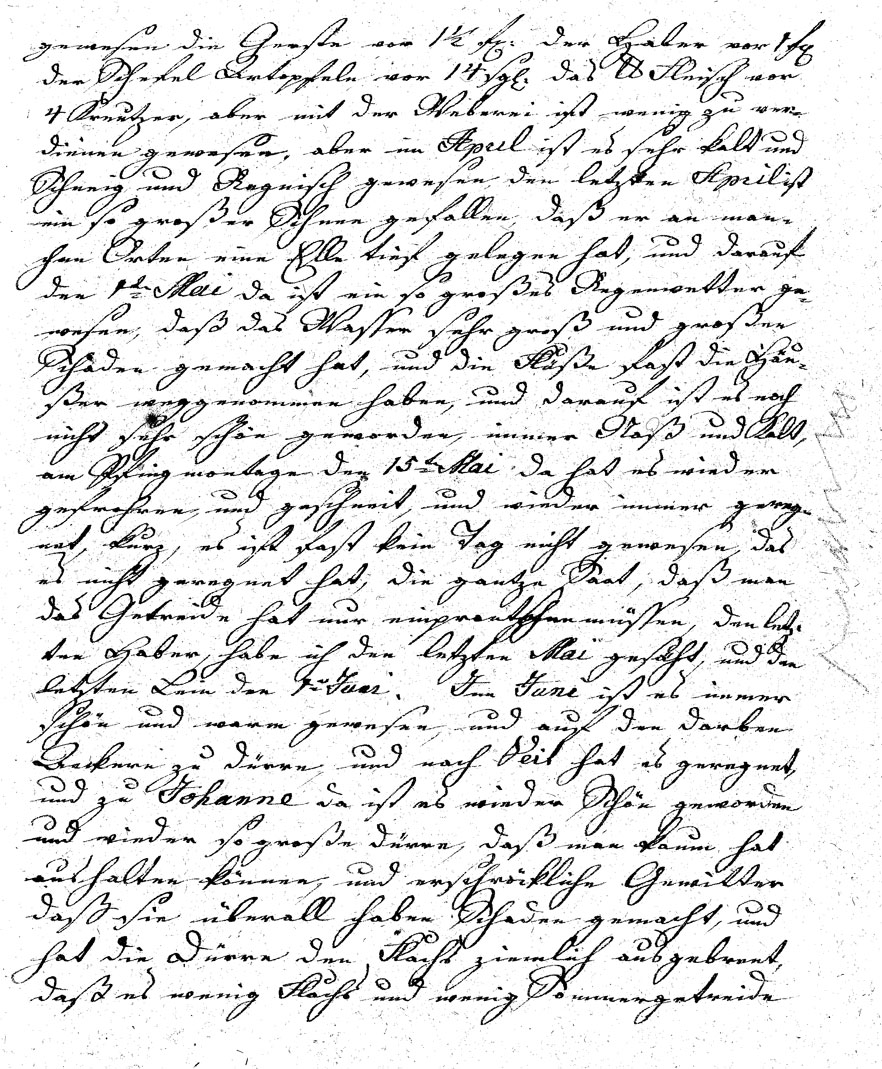 gewesen die Gerste vor 1½ fx: der Haber vor 1 fx
der Schefel Ertopfeln vor 14 sgl. das ℔ Fleisch vor
4 Kreutzer, aber mit der Weberei ist wenig zu ver-
dienen gewesen, aber im April ist es sehr kalt und
Schneig und Regnisch gewesen, den letzten April ist
ein so großer Schnee gefallen, daß er an man-
chen Orten eine Elle tief gelegen hat, und darauf
den 1ten Mai da ist ein so großes Regenwetter ge-
wesen, daß das Wasser sehr groß und großen
Schaden gemacht hat, und die Flöße fast die Häu-
ßer weggenommen haben, und darauf ist es noch
nicht sehr schön geworden, immer Naß und Kalt,
am Pfingmontage den 15ten Mai da hat es wieder
gefrohren, und geschneit, und wieder immer gereg-
net, kurz, es ist fast kein Tag nicht gewesen, das
es nicht geregnet hat, die gantze Saat, daß man
das Getreide hat nur einprantschen müssen, den letz-
ten Haber, habe ich den letzten Mai gesäht, und den
letzten Lein den 7ten Juni. Im Juni ist es immer
schön und warm gewesen, und auf den darben
Aeckern zu dürre, und nach Veit hat es geregnet,
und zu Johanne da ist es wieder Schön geworden
und wieder so große dürre, daß man kaum hat
aushalten können, und erschröckliche Gewitter
daß sie überall haben Schaden gemacht, und
hat die Dürre den Flachs ziemlich ausgebrent,
daß es wenig Flachs und wenig Sommergetreide